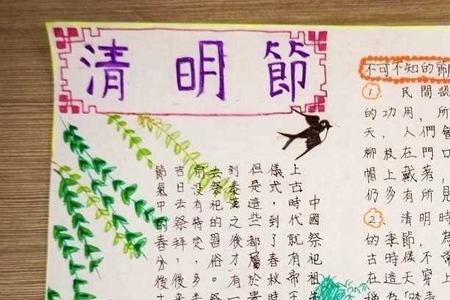 清明節
中國祭祀祖
上古時代就有帝
儀式，到了春秋時
但是這些都屬於
之後才有一
去祭祀的習俗。
沒有特定，多
吉日去祭拜，後來
節氣中的春分後十
不可不知的節
① 民間
的功用，所
天，人們會
柳枝在門口
帽上戴著，
仍多有所見
② 清明時
的季節，為
古時
在這天穿上